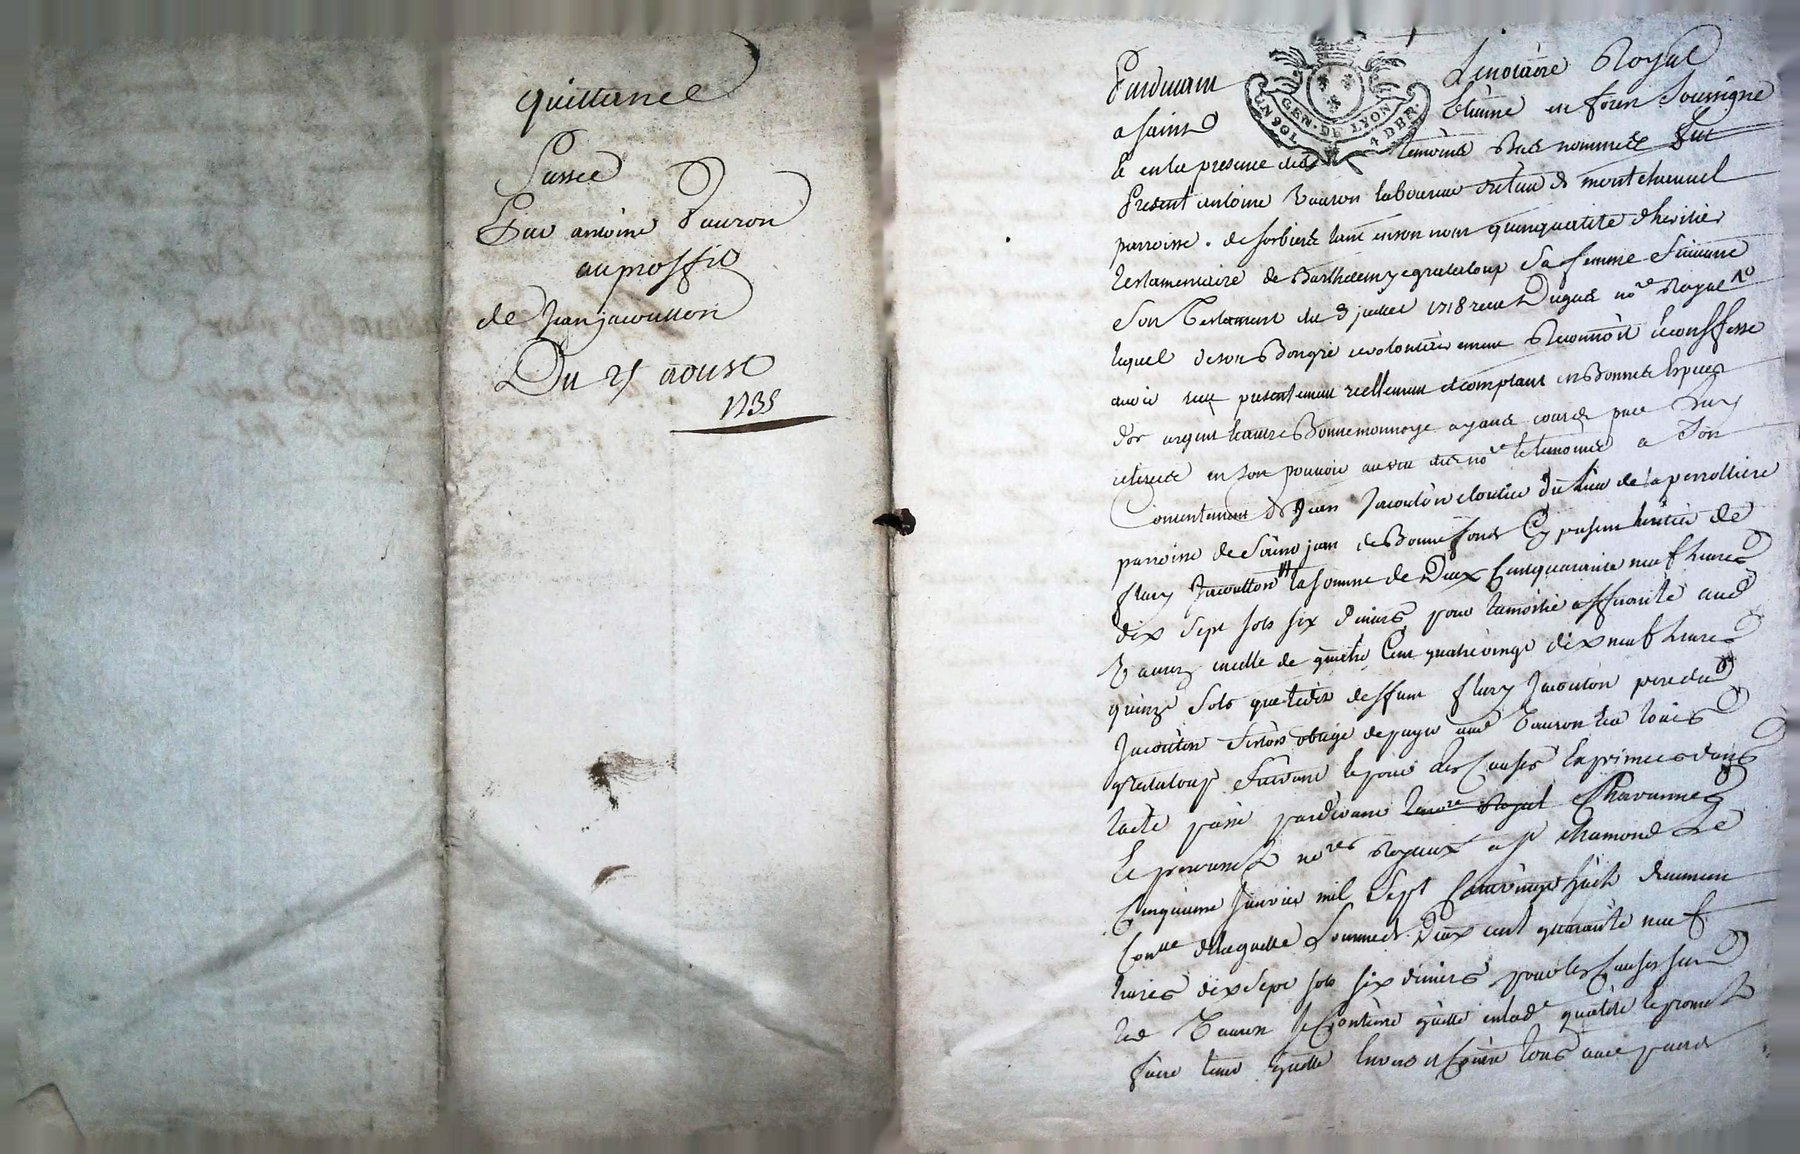 quittance
Passée
Par antoine Tauron
au proffit
de Jean jacoutton
Du 25 aoust
1735
Pardevant Le notaire Royal
a Saint Etienne en forez Soussigné
GEN. DE LYON
UN SOL 4 DEN.
& en la presence des temoins Bas nommés fut
Present antoine Tauron laboureur du lieu de
parroisse de Sorbiers tant en son nom qu'en qualité d'heritier
testamentaire de Barthelemye grataloup Sa femme Suivant
Son Testament du 3 juillet 1718 receu Dugas no.re Royal
lequel de son Bon gré & volontairement Reconnoit & conffesse
avoir receu presentement reellement & comptant en Bonnes Especes
d'or argent & autre Bonne monnoye ayant cours
retirée en son pouvoir au veu des no.re & temoins a Son
Contentement de Jean Jacouton cloutier du lieu de la perrotiere
parroisse de Saint jean de Bonnefonds Cy present heritier de
fleury Jacoutton la Somme de Deux Cent quarante neuf livres
dix sept sols six deniers pour la moitié affferante aud
Tauron en celle de quatre Cent quatre vingt dix neuf livres
quinze Sols que led deffunt fleury Jacouton pere dud
Jacouton s'etoit obligé de payer aud Tauron &
grataloup Suivant & pour les Causes Exprimées dans
l'acte passé pardevant le no.re Royal Chavannes
& no.res Royaux a St chamond Le
Cinquieme Janvier mil Sept Cent vingt huit
de laquelle Somme de Deux cent quarante neuf
livres dix sept sols six deniers pour les causes
led Tauron Se Contente quitte led & promet
faire tenir quitte Envers & Contre tous avec